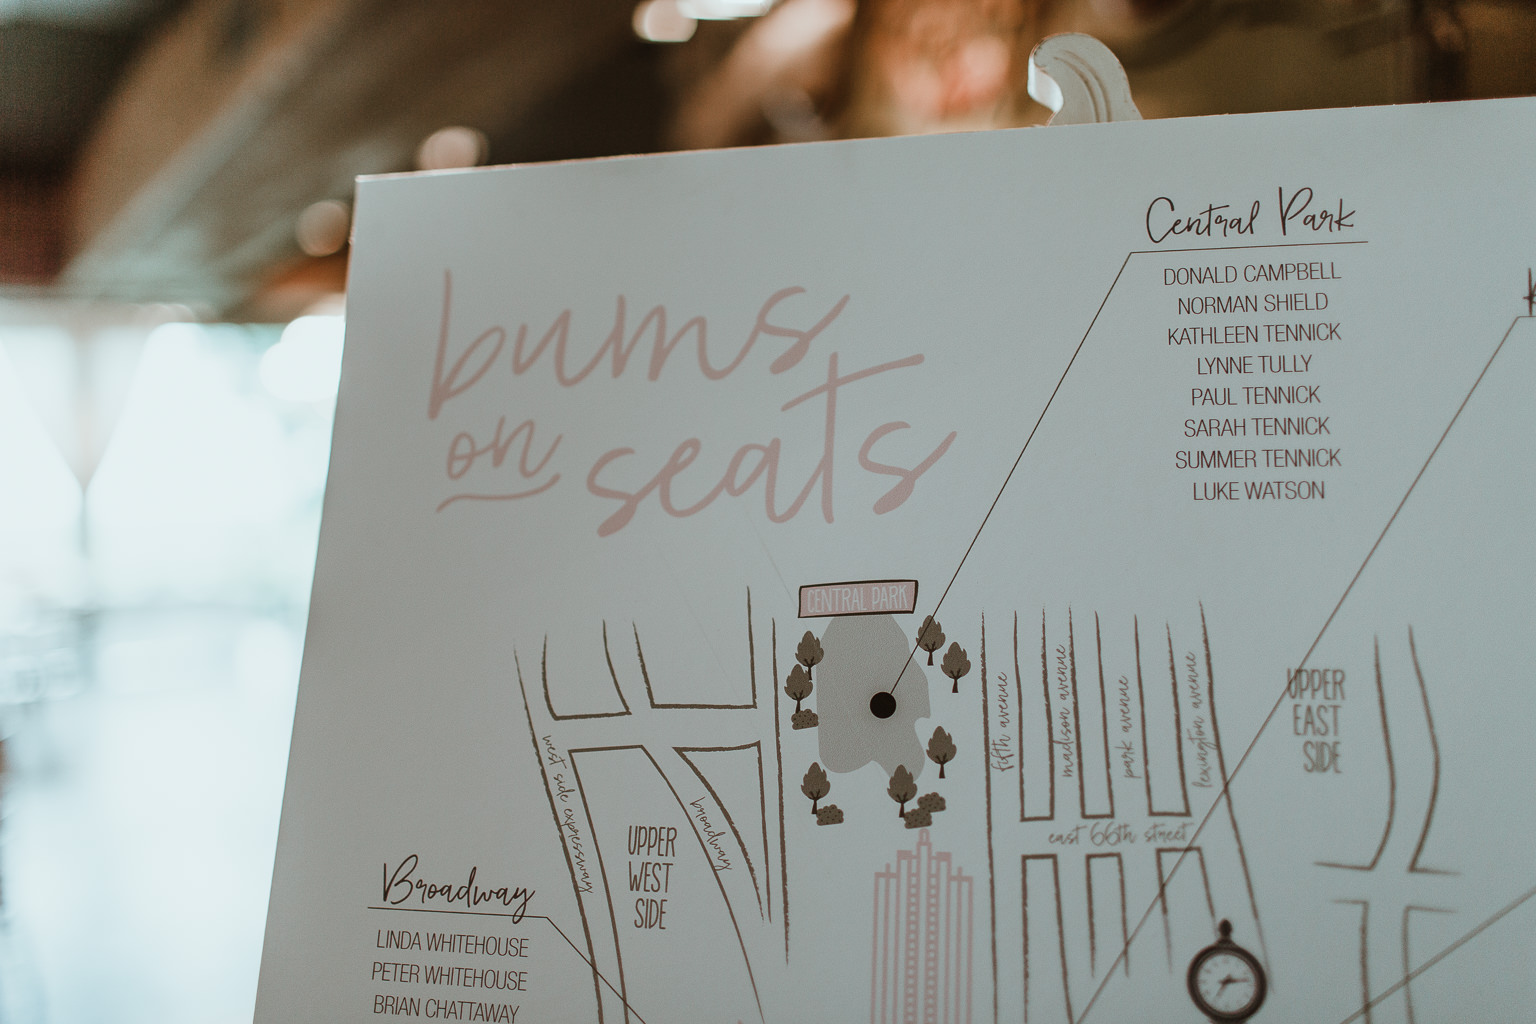 bums
on seats
Central Park
DONALD CAMPBELL
NORMAN SHIELD
KATHLEEN TENNICK
LYNNE TULLY
PAUL TENNICK
SARAH TENNICK
SUMMER TENNICK
LUKE WATSON
CENTRAL PARK
west side expressway
broadway
UPPER
WEST
SIDE
fifth avenue
madison avenue
park avenue
lexington avenue
east 66th street
UPPER
EAST
SIDE
Broadway
LINDA WHITEHOUSE
PETER WHITEHOUSE
BRIAN CHATTAWAY